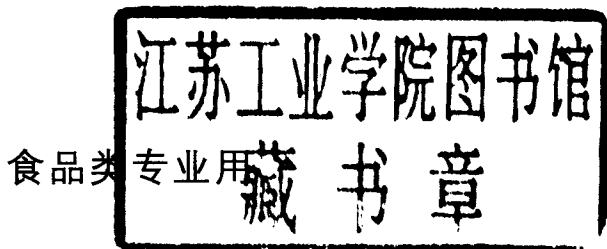 江苏工业学院图书馆
藏书章
食品类专业用